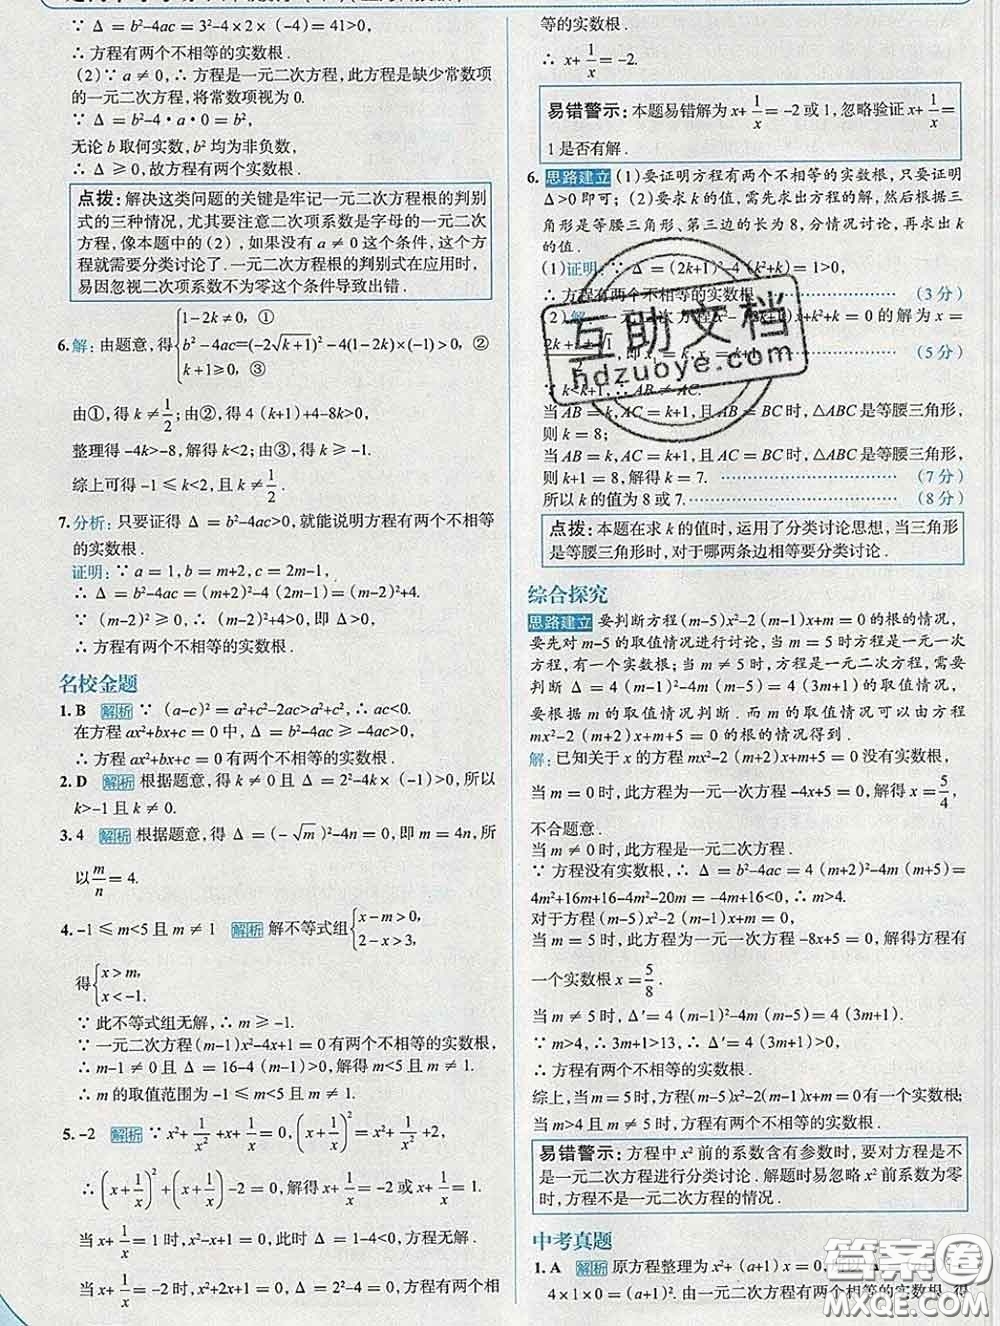 ∵ Δ = b²-4ac = 3²-4×2×(-4) = 41>0,
∴ 方程有两个不相等的实数根.
(2)∵ a ≠ 0,∴ 方程是一元二次方程,此方程是缺少常数项
的一元二次方程,将常数项视为 0.
∵ Δ = b²-4·a·0 = b²,
无论 b 取何实数, b² 均为非负数,
∴ Δ ≥ 0,故方程有两个实数根.
点拨:解决这类问题的关键是牢记一元二次方程根的判别
式的三种情况,尤其要注意二次项系数是字母的一元二次
方程,像本题中的(2),如果没有 a ≠ 0 这个条件,这个方
程就需要分类讨论了.一元二次方程根的判别式在应用时,
易因忽视二次项系数不为零这个条件导致出错.
6. 解:由题意,得 {1-2k ≠ 0, ①
b²-4ac=(-2√(k+1))²-4(1-2k)×(-1)>0, ②
k+1≥0, ③
由①,得 k ≠ 1/2;由②,得 4(k+1)+4-8k>0,
整理得 -4k>-8,解得 k<2;由③,得 k ≥ -1.
综上可得 -1 ≤ k<2,且 k ≠ 1/2.
7. 分析:只要证得 Δ = b²-4ac>0,就能说明方程有两个不相等
的实数根.
证明:∵ a = 1, b = m+2, c = 2m-1,
∴ Δ = b²-4ac =(m+2)²-4(2m-1)=(m-2)²+4.
∵ (m-2)² ≥ 0,∴(m-2)²+4>0,即 Δ>0,
∴ 方程有两个不相等的实数根.
名校金题
1. B 解析 ∵ (a-c)² = a²+c²-2ac>a²+c²,∴ ac<0.
在方程 ax²+bx+c = 0 中, Δ = b²-4ac ≥ -4ac>0,
∴ 方程 ax²+bx+c = 0 有两个不相等的实数根.
2. D 解析 根据题意,得 k ≠ 0 且 Δ = 2²-4k×(-1)>0,所以
k>-1 且 k ≠ 0.
3. 4 解析 根据题意,得 Δ =(-√m)²-4n = 0,即 m = 4n,所
以 m/n = 4.
4. -1 ≤ m<5 且 m ≠ 1 解析 解不等式组 {x-m>0,
2-x>3,
得 {x>m,
x<-1.
∵ 此不等式组无解,∴ m ≥ -1.
∵ 一元二次方程(m-1)x²-4x+1 = 0 有两个不相等的实数根,
∴ m-1 ≠ 0 且 Δ = 16-4(m-1)>0,解得 m<5 且 m ≠ 1,
∴ m 的取值范围为 -1 ≤ m<5 且 m ≠ 1.
5. -2 解析 ∵ x²+1/x²+x+1/x = 0, (x+1/x)² = x²+1/x²+2,
∴ (x+1/x)²+(x+1/x)-2 = 0,解得 x+1/x = -2 或 x+1/x = 1.
当 x+1/x = 1 时, x²-x+1 = 0,此时 Δ = 1-4<0,方程无解.
当 x+1/x = -2 时, x²+2x+1 = 0, Δ = 2²-4 = 0,方程有两个相
等的实数根.
∴ x+1/x = -2.
易错警示:本题易错解为 x+1/x = -2 或 1,忽略验证 x+1/x =
1 是否有解.
6. 思路建立 (1)要证明方程有两个不相等的实数根,只要证明
Δ>0 即可;(2)要求 k 的值,需先求出方程的解,然后根据三
角形是等腰三角形、第三边的长为 8,分情况讨论,再求出 k
的值.
(1)证明:∵ Δ =(2k+1)²-4(k²+k)= 1>0,
∴ 方程有两个不相等的实数根. (3 分)
(2)解:一元二次方程 x²-(2k+1)x+k²+k = 0 的解为 x =
即 x = k, x = k+1. (5 分)
∵ k<k+1,∴ AB ≠ AC.
当 AB = k, AC = k+1,且 AB = BC 时,△ABC 是等腰三角形,
则 k = 8;
当 AB = k, AC = k+1,且 AC = BC 时,△ABC 是等腰三角形,
则 k+1 = 8,解得 k = 7. (7 分)
所以 k 的值为 8 或 7. (8 分)
点拨:本题在求 k 的值时,运用了分类讨论思想,当三角形
是等腰三角形时,对于哪两条边相等要分类讨论.
综合探究
思路建立 要判断方程(m-5)x²-2(m-1)x+m = 0 的根的情况,
要先对 m-5 的取值情况进行讨论,当 m = 5 时方程是一元一次
方程,有一个实数根;当 m ≠ 5 时,方程是一元二次方程,需要
判断 Δ = 4(m-1)²-4m(m-5)= 4(3m+1)的取值情况,
要根据 m 的取值情况判断.而 m 的取值情况可以由方程
mx²-2(m+2)x+m+5 = 0 的根的情况得到.
解:已知关于 x 的方程 mx²-2(m+2)x+m+5 = 0 没有实数根,
当 m = 0 时,此方程为一元一次方程 -4x+5 = 0,解得 x = 5/4,
不合题意.
当 m ≠ 0 时,此方程是一元二次方程.
∵ 方程没有实数根,∴ Δ = b²-4ac = 4(m+2)²-4m(m+5)=
4m²+16m+16-4m²-20m = -4m+16<0,∴ m>4.
对于方程(m-5)x²-2(m-1)x+m = 0,
当 m = 5 时,此方程为一元一次方程 -8x+5 = 0,解得方程有
一个实数根 x = 5/8.
当 m ≠ 5 时, Δ′ = 4(m-1)²-4m(m-5)= 4(3m+1).
∵ m>4,∴ 3m+1>13,∴ Δ′ = 4(3m+1)>0,
∴ 方程有两个不相等的实数根.
综上,当 m = 5 时,方程(m-5)x²-2(m-1)x+m = 0 有一个实数根;
当 m>4 且 m ≠ 5 时,此方程有两个不相等的实数根.
易错警示:方程中 x² 前的系数含有参数时,要对方程是不
是一元二次方程进行分类讨论.解题时易忽略 x² 前系数为零
时,方程不是一元二次方程的情况.
中考真题
1. A 解析 原方程整理为 x²+(a+1)x = 0,
4×1×0 =(a+1)².由一元二次方程有两个相等的实数根,得
互助文档
hdzuoye.com
答案圈
MXQE.COM